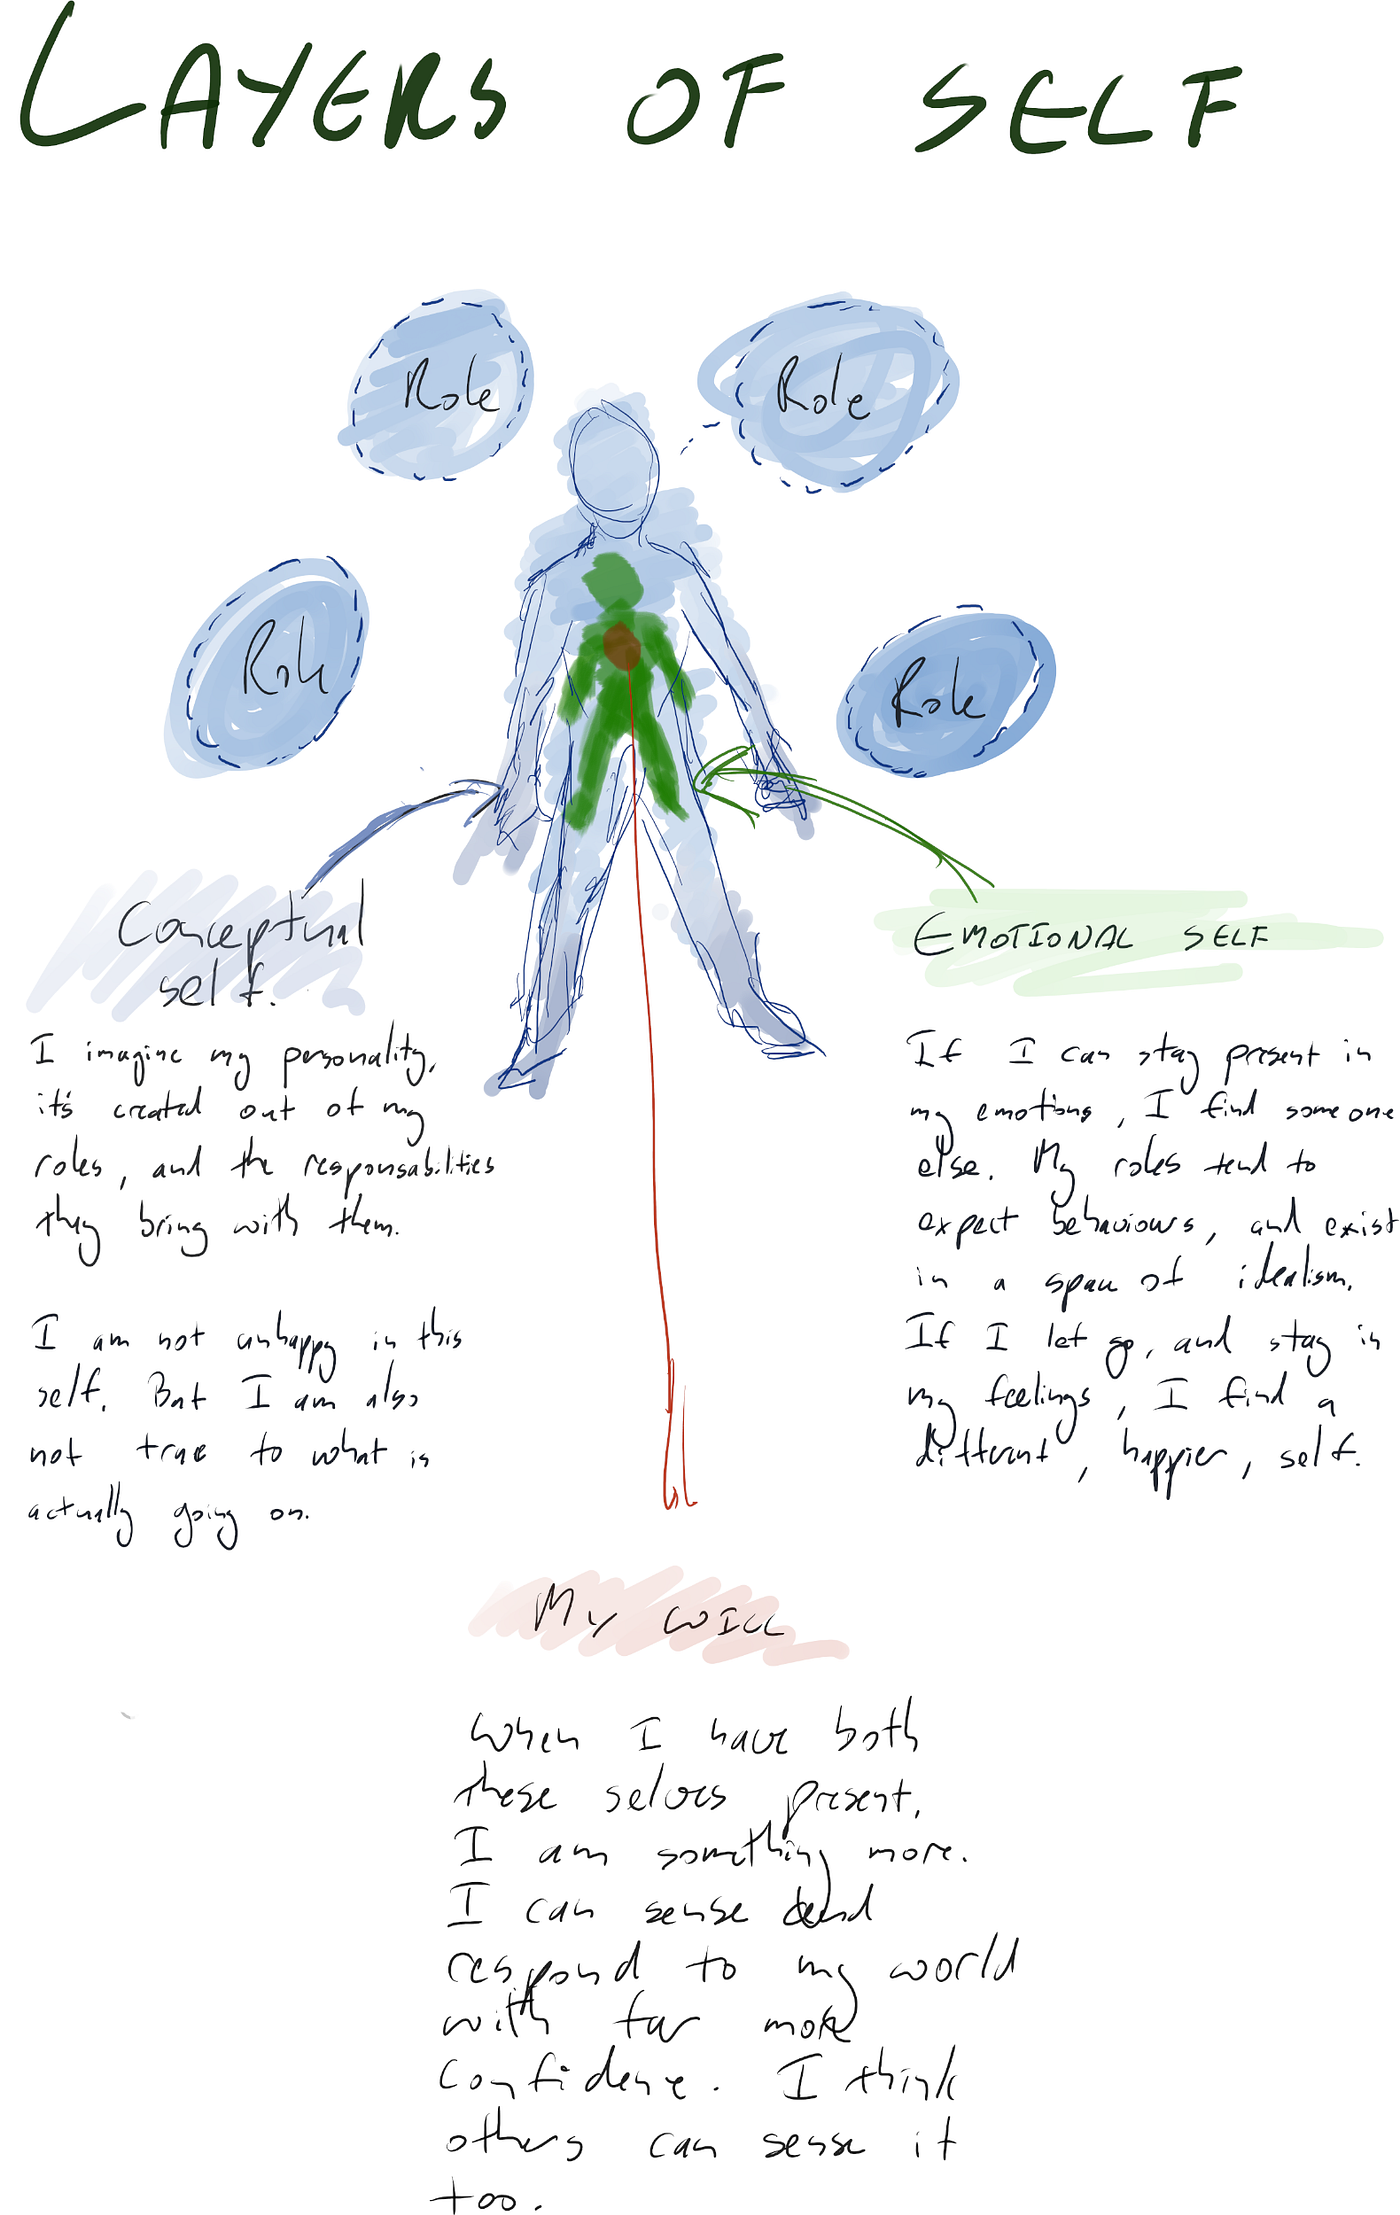 LAYERS OF SELF
Role
Role
Role
Role
Conceptual
self.
I imagine my personality,
it's created out of my
roles, and the responsabilities
they bring with them.
I am not unhappy in this
self. But I am also
not true to what is
actually going on.
EMOTIONAL SELF
If I can stay present in
my emotions, I find someone
else. My roles tend to
expect behaviours, and exist
in a span of idealism.
If I let go, and stay in
my feelings, I find a
different, happier, self.
MY WILL
When I have both
these selves present,
I am something more.
I can sense and
respond to my world
with far more
confidence. I think
others can sense it
too.